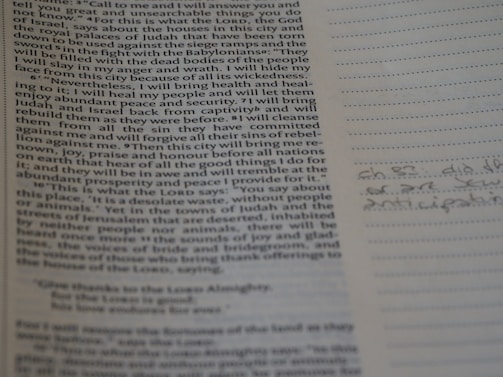 "Call to me and I will answer you and
tell you great and unsearchable things you do
not know.” ⁴For this is what the LORD, the God
of Israel, says about the houses in this city and
the royal palaces of Judah that have been torn
down to be used against the siege ramps and the
sword ⁵in the fight with the Babylonians: ‘They
will be filled with the dead bodies of the people
I will slay in my anger and wrath. I will hide my
face from this city because of all its wickedness.
⁶“‘Nevertheless, I will bring health and heal-
ing to it; I will heal my people and will let them
enjoy abundant peace and security. ⁷I will bring
Judah and Israel back from captivity and will
rebuild them as they were before. ⁸I will cleanse
them from all the sin they have committed
against me and will forgive all their sins of rebel-
lion against me. ⁹Then this city will bring me re-
nown, joy, praise and honour before all nations
on earth that hear of all the good things I do for
it; and they will be in awe and will tremble at the
abundant prosperity and peace I provide for it.’
¹⁰“This is what the LORD says: ‘You say about
this place, “It is a desolate waste, without people
or animals.” Yet in the towns of Judah and the
streets of Jerusalem that are deserted, inhabited
by neither people nor animals, there will be
heard once more ¹¹the sounds of joy and glad-
ness, the voices of bride and bridegroom, and
the voices of those who bring thank offerings to
the house of the LORD, saying,
“Give thanks to the LORD Almighty,
for the LORD is good;
his love endures for ever.”
For I will restore the fortunes of the land as they
were before,’ says the LORD.
“This is what the LORD Almighty says: ‘In this
place, desolate and without people or animals
ch 32: did th
or are
anticipatin